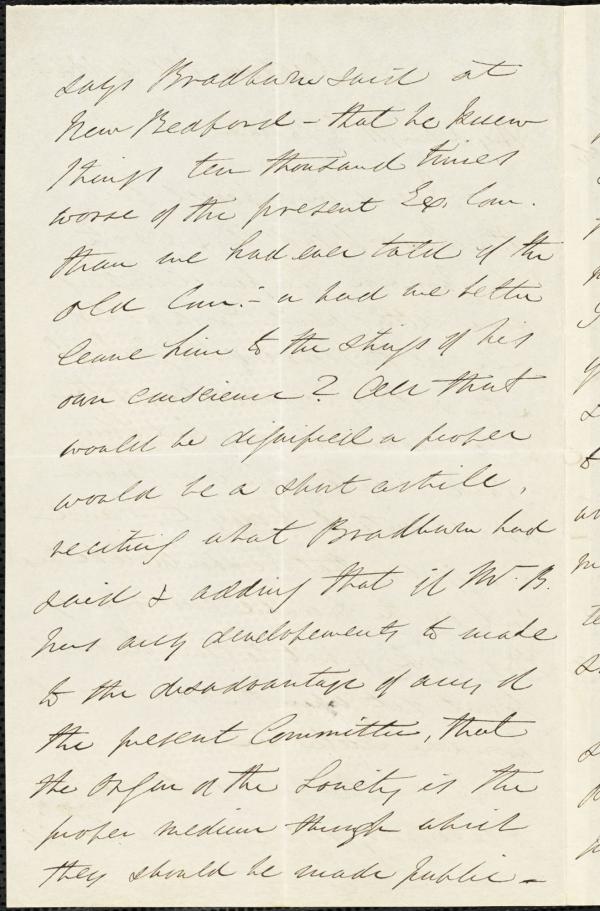 says Bradburn said at
New Bedford - that he knew
things ten thousand times
worse of the present Ex. Com.
than we had ever told of the
old Com. - or had we better
leave him to the stings of his
own conscience? All that
would be dignified or proper
would be a short article,
reciting what Bradburn had
said & adding that if Mr. B.
has any developements to make
to the disadvantage of any of
the present Committee, that
the Organ of the Society is the
proper medium through which
they should be made public -